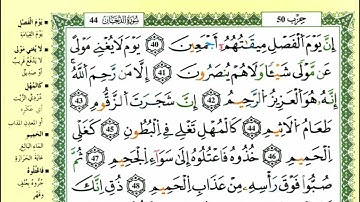 44 سُورَةُ الدُّخَانِ
حِزْب 50
إِنَّ يَوْمَ الْفَصْلِ مِيقَاتُهُمْ أَجْمَعِينَ 40 يَوْمَ لَا يُغْنِي مَوْلًى
عَن مَّوْلًى شَيْئًا وَلَا هُمْ يُنصَرُونَ 41 إِلَّا مَن رَّحِمَ اللَّهُ
إِنَّهُ هُوَ الْعَزِيزُ الرَّحِيمُ 42 إِنَّ شَجَرَتَ الزَّقُّومِ 43
طَعَامُ الْأَثِيمِ 44 كَالْمُهْلِ تَغْلِي فِي الْبُطُونِ 45 كَغَلْيِ
الْحَمِيمِ 46 خُذُوهُ فَاعْتُلُوهُ إِلَى سَوَاءِ الْجَحِيمِ 47 ثُمَّ
صُبُّوا فَوْقَ رَأْسِهِ مِنْ عَذَابِ الْحَمِيمِ 48 ذُقْ إِنَّكَ
يَوْمَ الْفَصْلِ
يَوْمَ الْقِيَامَةِ
لَا يُغْنِي مَوْلًى
لَا يَدْفَعُ قَرِيبٌ
كَالْمُهْلِ
دُرْدِيِّ الزَّيْتِ
الْحَمِيمِ
الْمَاءِ الْبَالِغِ
غَايَةَ الْحَرَارَةِ
فَاعْتُلُوهُ